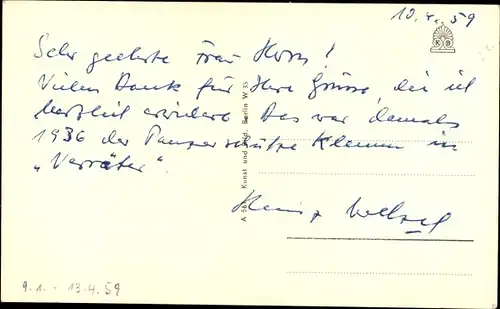 10.4.59
K B
Sehr geehrte Frau Horn!
Vielen Dank für Ihre Grüsse, die ich
herzlich erwidere. Das war damals
1936 der Panzerschütze Klemm in
„Verräter“.
Heinz Welzel
A 56 Kunst und Bild, Berlin W 35
9.1. - 13.4.59